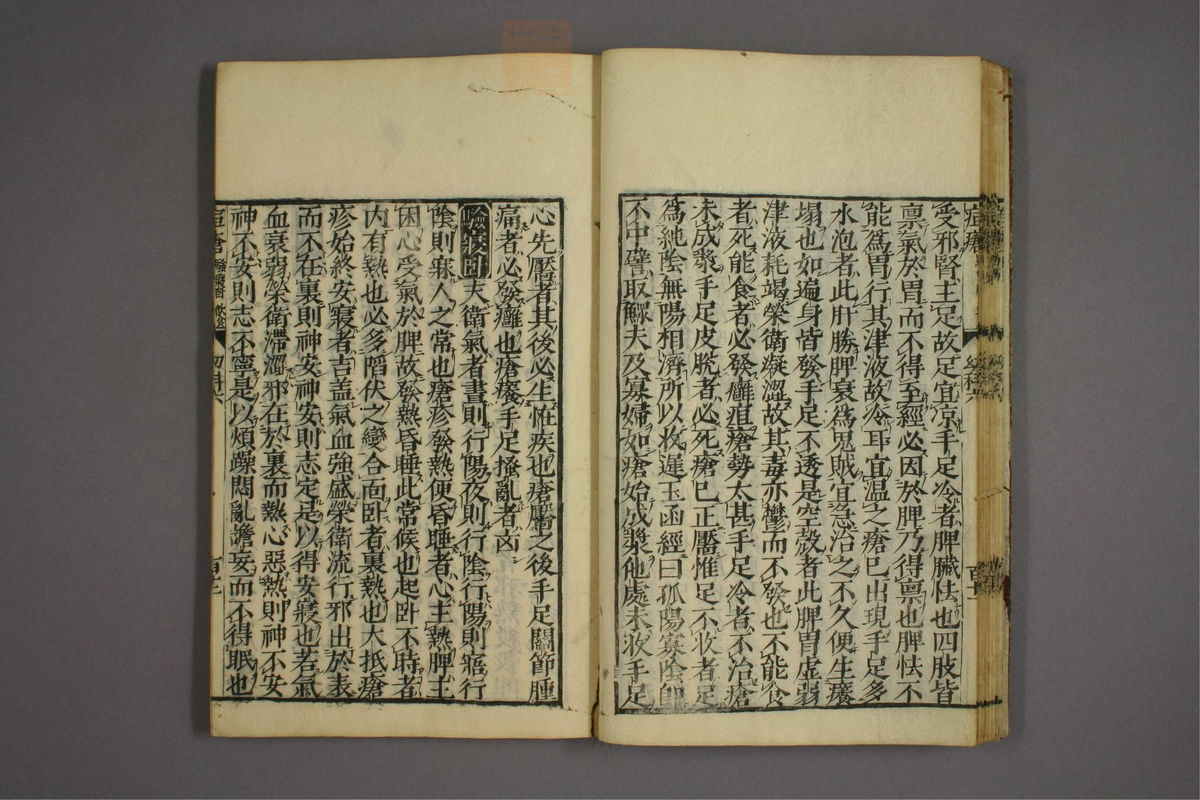 受邪腎主足故足宜凉手足冷者脾臟怯也四肢皆
禀氣於胃而不得至經必因於脾乃得禀也脾怯不
能爲胃行其津液故冷耳宜温之瘡已出現手足多
水泡者此肝勝脾衰爲鬼賊宜急治之不久便生癢
塌也如遍身皆發手足不透是空殻者此脾胃虚弱
津液耗竭榮衛凝澀故其毒亦鬱而不發也不能食
者死能食者必發癰疽瘡勢太甚手足冷者不治瘡
未成漿手足皮脱者必死瘡已正靨惟足不收者足
爲純陰無陽相濟所以收遲玉函經曰孤陽寡陰即
不中譬取鰥夫及寡婦如瘡始成漿他處未收手足
心先靨者其後必生恠疾也瘡靨之後手足關節腫
痛者必發癰也瘡癢手足擾亂者凶
驗寢卧夫衛氣者晝則行陽夜則行陰行陽則寤行
陰則寐人之常也瘡疹發熱便昏睡者心主熱脾主
困心受氣於脾故發熱昏睡此常候也起卧不時者
内有熱也必多陷伏之變合面卧者裏熱也大抵瘡
疹始終安寢者吉盖氣血強盛榮衛流行邪出於表
而不在裏則神安神安則志定是以得安寢也若氣
血衰弱榮衛滯濁邪在於裏而熱心惡熱則神不安
神不安則志不寧是以煩躁悶亂譫妄而不得眠也
痘瘡